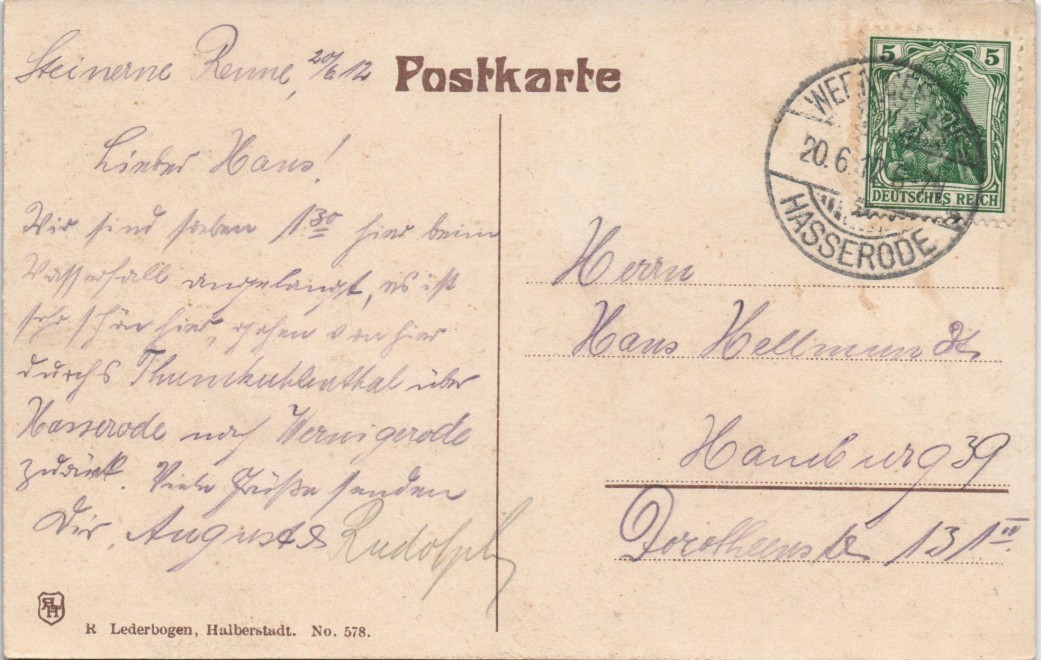 Steinerne Renne, 20/6 12
Postkarte
Lieber Hans!
Wir sind soeben 1 30 hier beim
Wasserfall angelangt, es ist
sehr schön hier, gehen von hier
durchs Thumkuhlenthal über
Hasserode nach Wernigerode
zurück. Viele Grüße senden
Dir, August &
Rudolph
5 5
DEUTSCHES REICH
WERNIGERODE
20.6.12.
HASSERODE
Herrn
Hans Hellmundt
Hamburg 39
Dorotheenstr 131 III
RH
R Lederbogen, Halberstadt. No. 578.